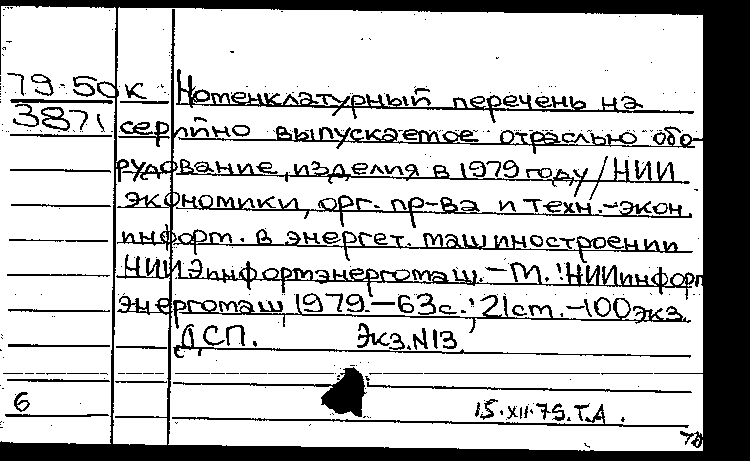 79-50к Номенклатурный перечень на
3871 серийно выпускаемое отраслью обо-
рудование, изделия в 1979 году/НИИ
экономики, орг. пр-ва и техн.-экон.
информ. в энергет. машиностроении
НИИЭинформэнергомаш. – М.: НИИинформ
энергомаш, 1979. – 63с.; 21см. – 100экз.
ДСП. Экз.N13.
6 15.XII.79.Т.А.